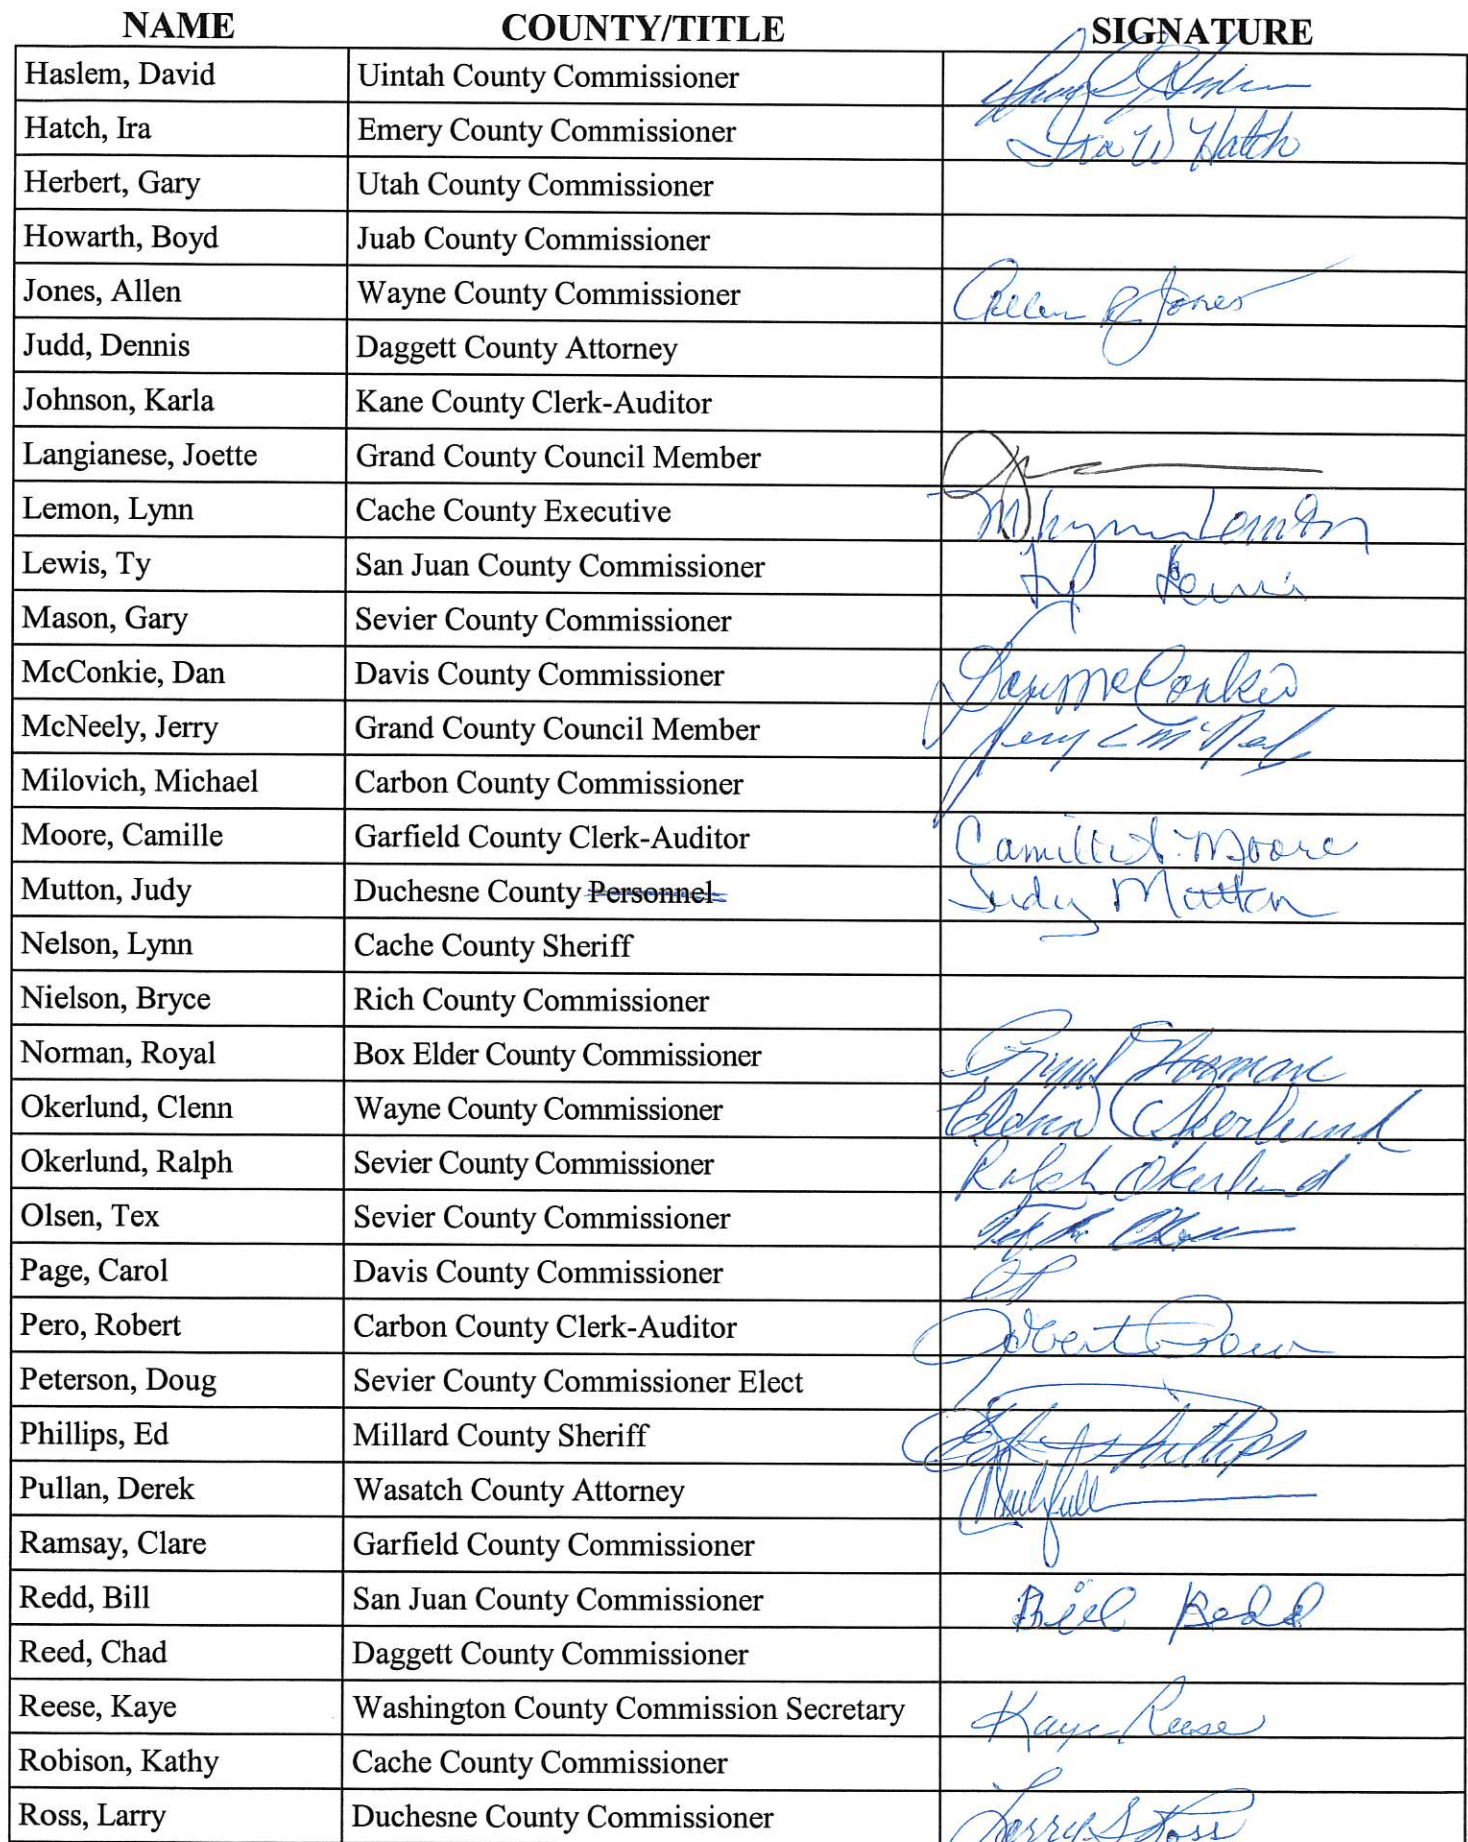 NAME COUNTY/TITLE SIGNATURE
Haslem, David Uintah County Commissioner
Hatch, Ira Emery County Commissioner Ira W Hatch
Herbert, Gary Utah County Commissioner
Howarth, Boyd Juab County Commissioner
Jones, Allen Wayne County Commissioner Allen Jones
Judd, Dennis Daggett County Attorney
Johnson, Karla Kane County Clerk-Auditor
Langianese, Joette Grand County Council Member
Lemon, Lynn Cache County Executive M Lynn Lemon
Lewis, Ty San Juan County Commissioner Ty Lewis
Mason, Gary Sevier County Commissioner
McConkie, Dan Davis County Commissioner Dan McConkie
McNeely, Jerry Grand County Council Member Jerry McNeely
Milovich, Michael Carbon County Commissioner
Moore, Camille Garfield County Clerk-Auditor Camille S. Moore
Mutton, Judy Duchesne County Personnel Judy Mutton
Nelson, Lynn Cache County Sheriff
Nielson, Bryce Rich County Commissioner
Norman, Royal Box Elder County Commissioner Royal Norman
Okerlund, Clenn Wayne County Commissioner Okerlund
Okerlund, Ralph Sevier County Commissioner Ralph Okerlund
Olsen, Tex Sevier County Commissioner Olsen
Page, Carol Davis County Commissioner CP
Pero, Robert Carbon County Clerk-Auditor Robert Pero
Peterson, Doug Sevier County Commissioner Elect
Phillips, Ed Millard County Sheriff Ed Phillips
Pullan, Derek Wasatch County Attorney
Ramsay, Clare Garfield County Commissioner
Redd, Bill San Juan County Commissioner Bill Redd
Reed, Chad Daggett County Commissioner
Reese, Kaye Washington County Commission Secretary Kaye Reese
Robison, Kathy Cache County Commissioner
Ross, Larry Duchesne County Commissioner Larry S Ross